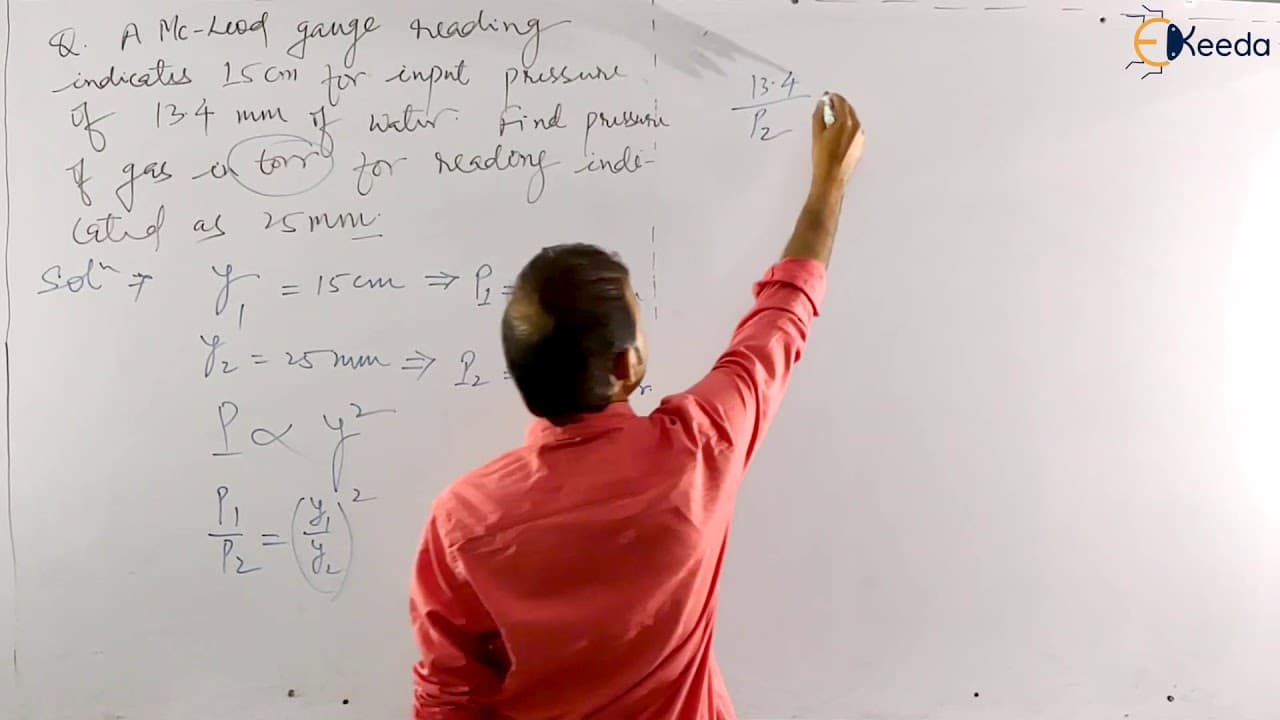 Q. A Mc-Leod gauge reading
indicates 15cm for input pressure
of 13.4 mm of water. Find pressure
of gas in torr for reading indi-
cated as 25mm.
Solⁿ → y₁ = 15cm ⇒ P₁ =
y₂ = 25mm ⇒ P₂ =
P ∝ y²
P₁/P₂ = (y₁/y₂)²
13.4/P₂
EKeeda